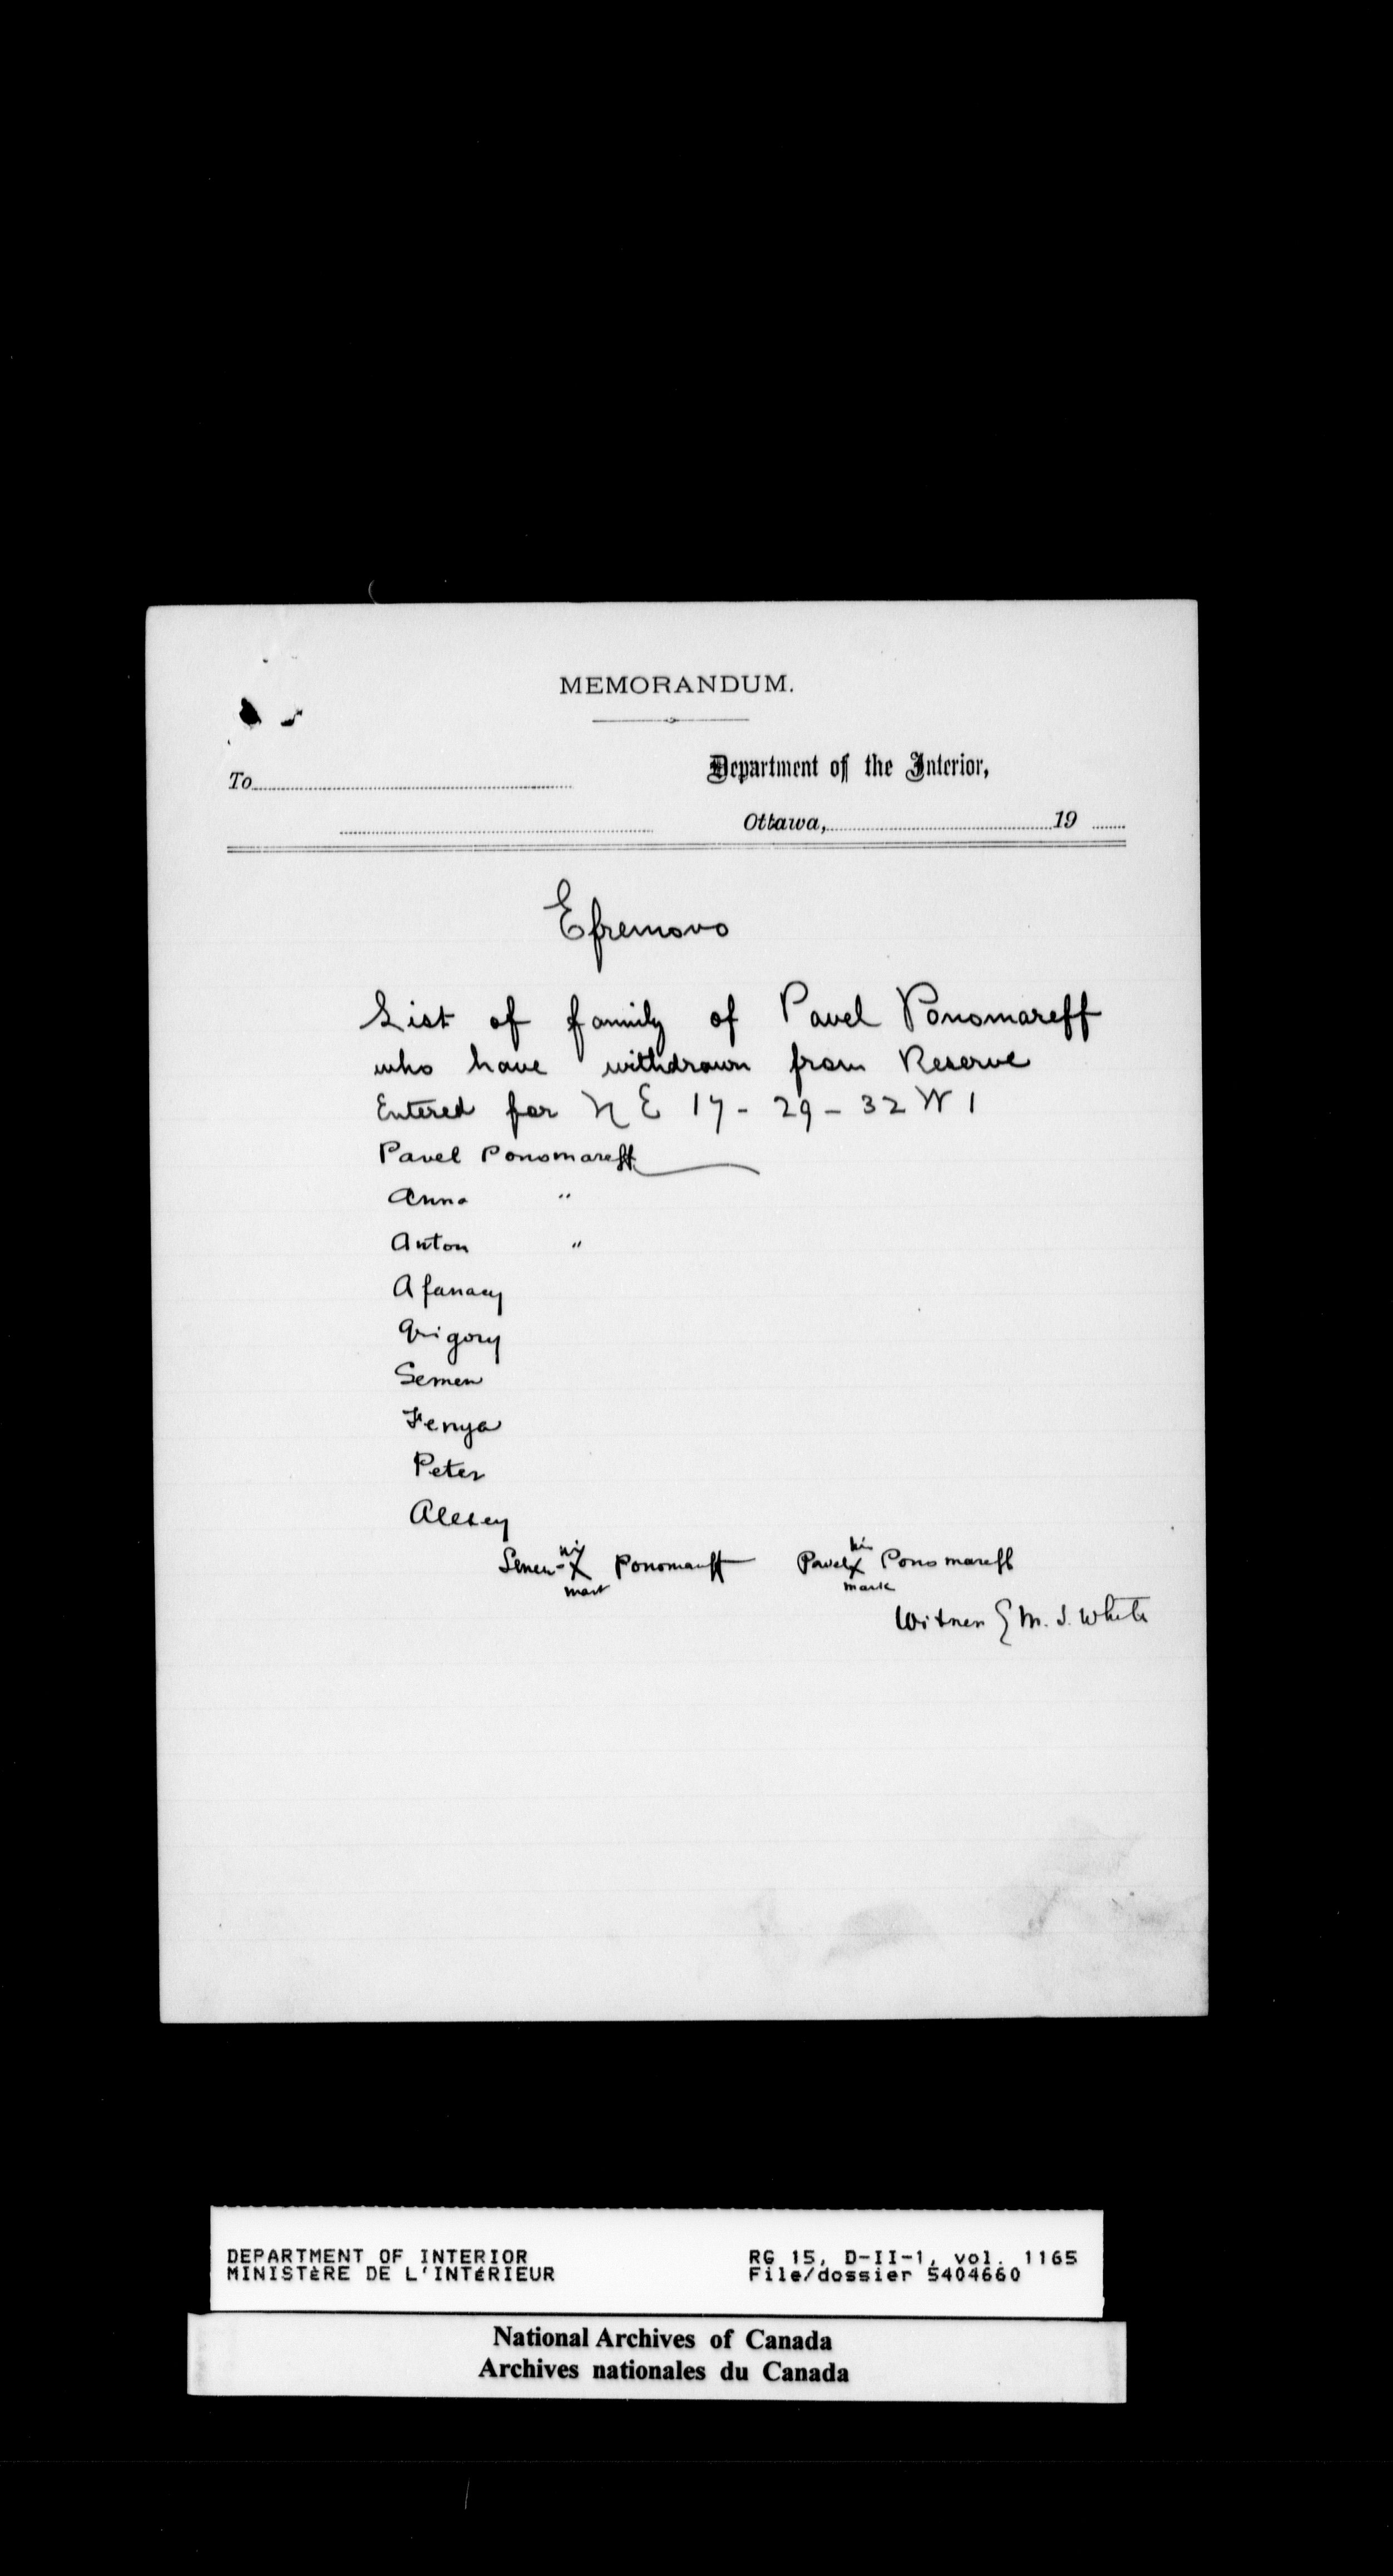 MEMORANDUM.
Department of the Interior,
To
Ottawa, 19
Efremovo
List of family of Pavel Ponomareff
who have withdrawn from Reserve
Entered for N E 17 - 29 - 32 W 1
Pavel Ponomareff
Anna "
Anton "
Afanacy
Grigory
Semen
Fenya
Peter
Alexey
his his
Semen - X Ponomareff Pavel X Ponomareff
mark mark
Witness { M. J. White
DEPARTMENT OF INTERIOR RG 15, D-II-1, vol. 1165
MINISTÈRE DE L'INTÉRIEUR File/dossier 5404660
National Archives of Canada
Archives nationales du Canada